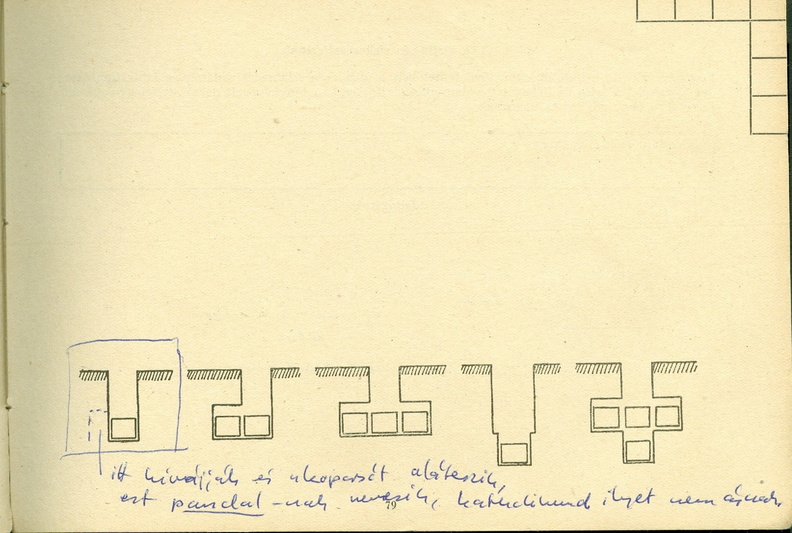 itt kivájják és a koporsót aláteszik,
ezt pandal-nak nevezik, ilyet nem ásnak
79